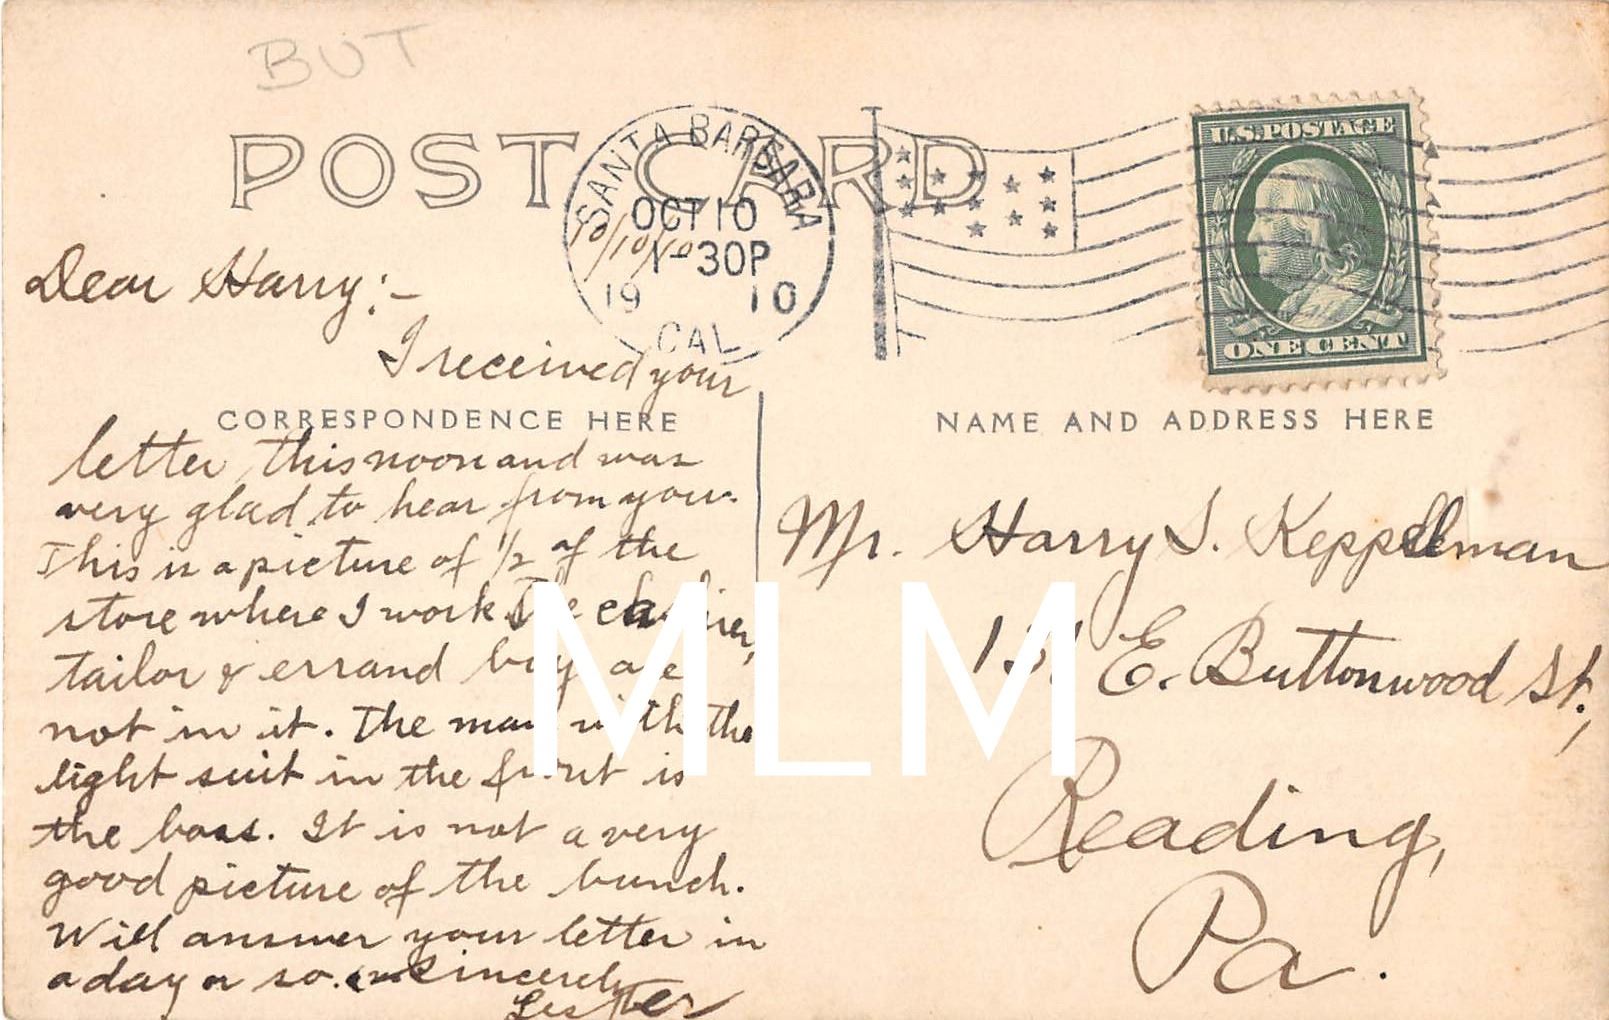 BUT
POST CARD
SANTA BARBARA
OCT 10
1-30P
19 10
CAL
U.S. POSTAGE
ONE CENT
10/10/10
Dear Harry:-
I received your
CORRESPONDENCE HERE
letter this noon and was
very glad to hear from you.
This is a picture of 1/2 of the
store where I work. The cashier,
tailor & errand boy are
not in it. The man with the
light suit in the front is
the boss. It is not a very
good picture of the bunch.
Will answer your letter in
a day or so. Sincerely
Lester
NAME AND ADDRESS HERE
Mr. Harry S. Keppelman
E. Buttonwood St.,
Reading,
Pa.
MLM